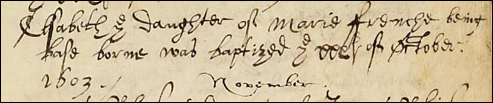 Elsabeth ye daughter of Marie Frenche being
base borne was baptized ye xxxth of October.
1603.
November.